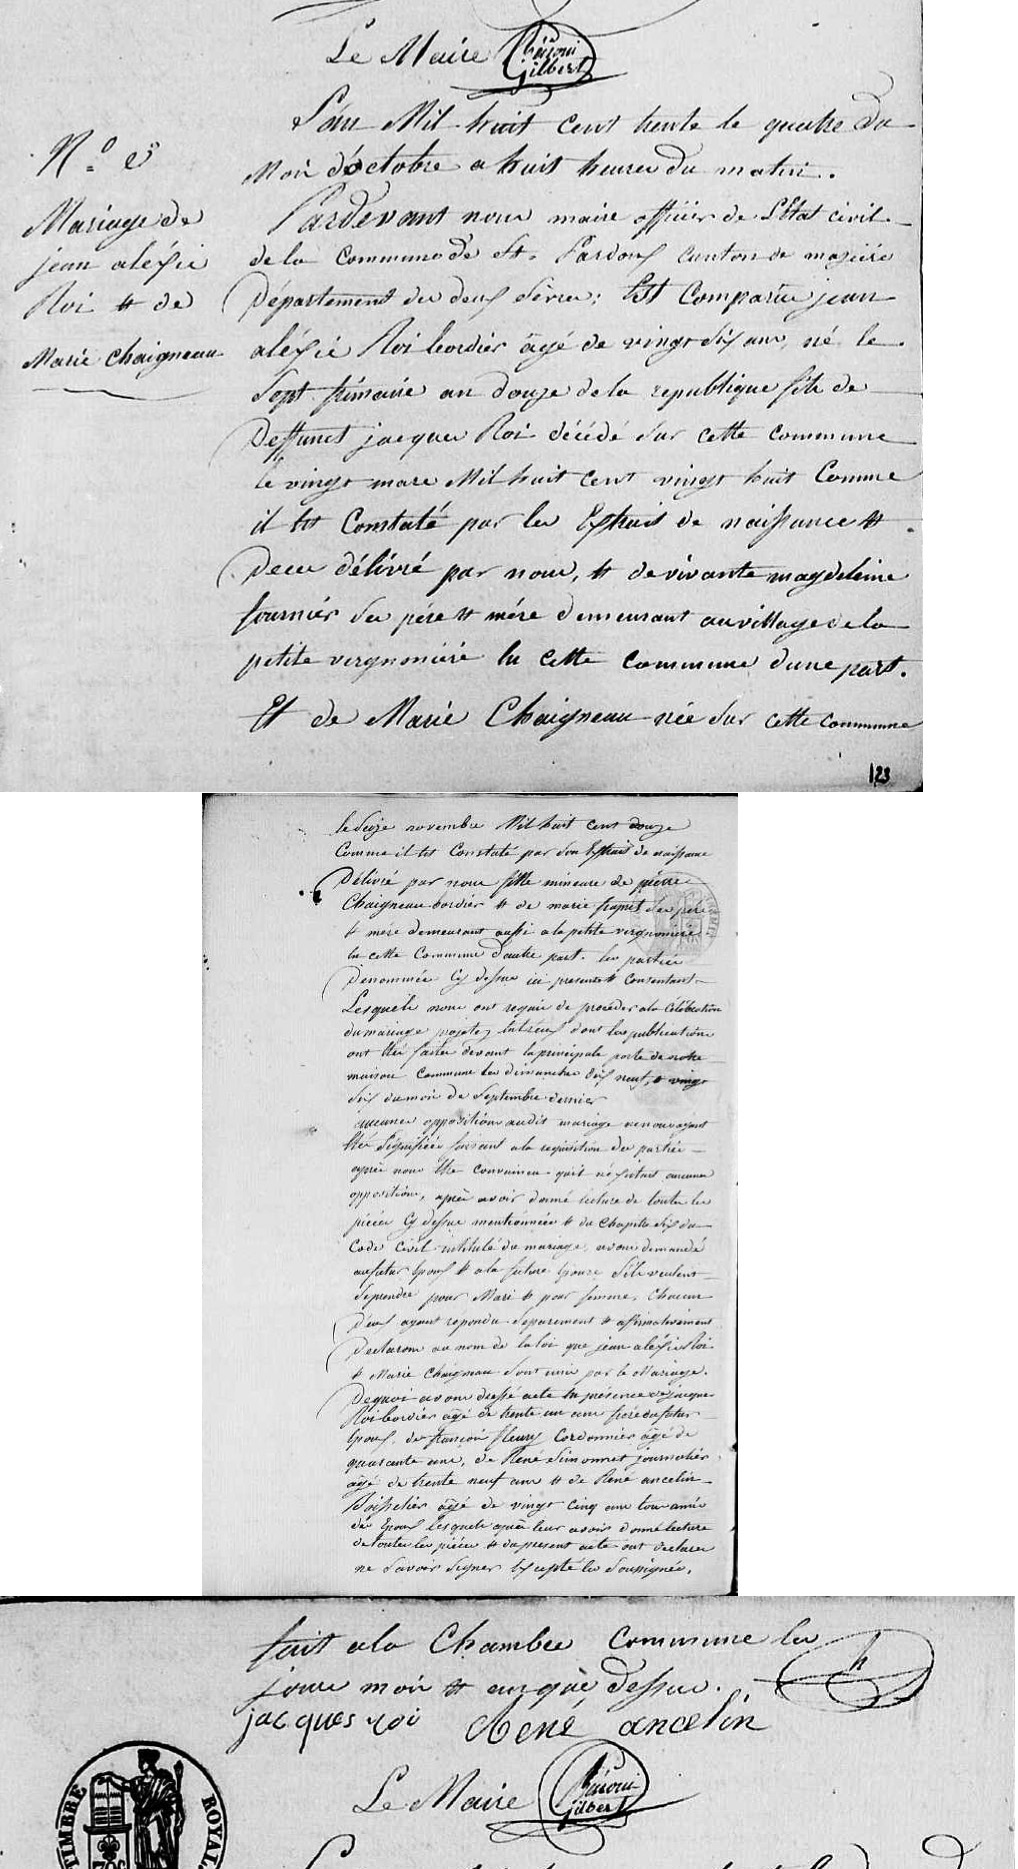 Le Maire
Gilbert
L'an Mil huit cent trente le quatre du
Mois d'octobre a huit heures du matin.
N.o
Mariage de
jean aléxis
Roi et de
Marie Chaigneau
Pardevant nous maire officier de L'Etat civil
de la Commune de St. Pardoux canton de maziére
Département des deux Sèvres; Est Comparu jean
aléxis Roi bordier âgé de vingt six ans, né le
Sept frimaire an douze de la republique fils de
Deffunct jacques Roi décédé sur cette commune
le vingt mars Mil huit cent vingt huit Comme
il Est Constaté par les Extrais de naissance et
Deces délivré par nous, et de vivante magdeleine
fournier ses pére et mére demeurant au village de la
petite vergnoniére En cette Commune d'une part.
Et de Marie Chaigneau née sur cette commune
123
le Seize novembre Mil huit cent douze
Comme il Est Constaté par son Extrait de naissance
Délivré par nous fille mineure de pierre
Chaigneau bordier et de marie ses pere
et mére demeurant aussi a la petite vergnoniére
En cette Commune d'autre part. les parties
Denommées Cy dessus ici presente et Consentent
Lesquels nous ont requis de procéder a la Célébration
du mariage projetez Entreux dont les publications
ont Eté faites devant la principale porte de notre
maison Commune les dimanches dix neuf, et vingt
Six du mois de Septembre dernier
aucunes oppositions audit mariage ne nous ayant
Eté Signifiées faisant a la requisition des parties
aprés nous Etre Convaincu quil n'éxistais aucunes
oppositions, aprés avoir donné lecture de toutes les
piéces Cy dessus mentionnées et du Chapitre Six du
Code Civil intitulé du mariage, avons demandé
au futur Epoux et a la future Epouse S'ils veulent
Se prendre pour Mari et pour femme, Chacun
D'eux ayant repondu Separement et afirmativement
Declarons au nom de la loi que jean aléxis Roi
et Marie Chaigneau Sont unis par le Mariage.
De quoi avons dressé acte En présence de jacques
Roi bordier âgé de trente un ans frére du futur
Epoux, de françois fleury Cordonnier âgé de
quarante ans, de René Simonnet journalier
âgé de trente neuf ans et de René ancelin
Boisselier âgé de vingt Cinq ans tous amis
des Epoux Lesquels aprés leur avoir donné lecture
de toutes les piéces et du present acte ont declarer
ne Savoir Signer Excepté les Soussignés.
fait a la Chambre Commune les
jours mois et an que dessus.
jacques roi René ancelin
Le Maire
Gilbert
TIMBRE ROYAL